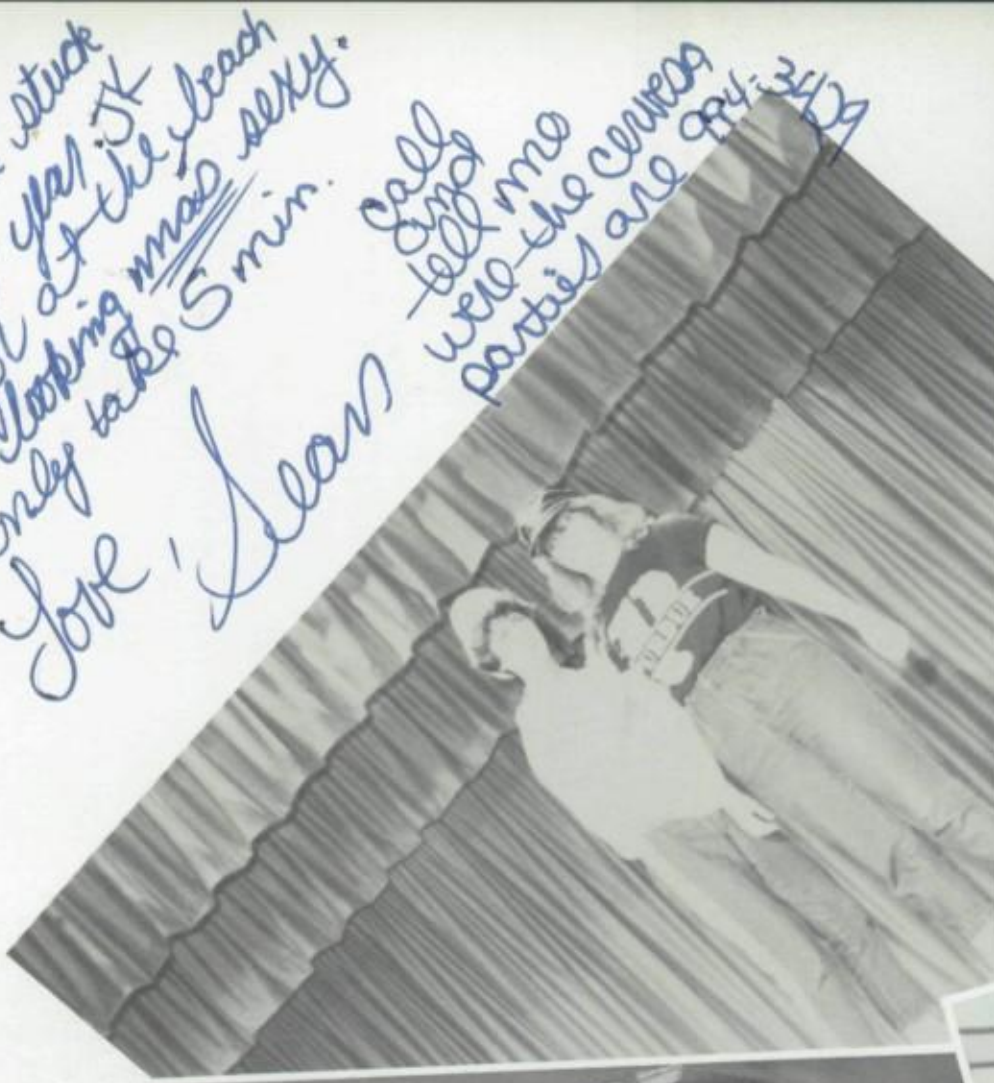 stuck
year. JK
at the beach
looking mas sexy.
only take 5 min.
Love, Sean
Call
and
tell me
were the cervesa
parties are 994-3429